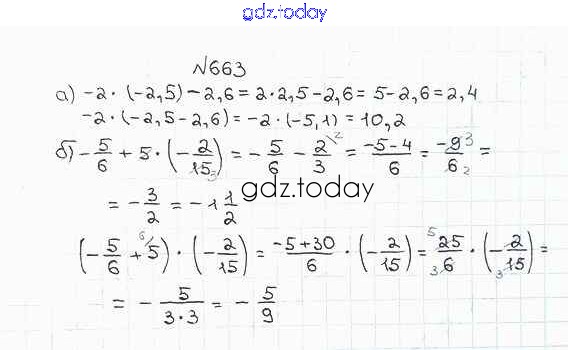 gdz.today
№663
а) -2 · (-2,5) - 2,6 = 2·2,5 - 2,6 = 5 - 2,6 = 2,4
-2 · (-2,5 - 2,6) = -2 · (-5,1) = 10,2
б) - 5/6 + 5 · (- 2/15 3) = - 5/6 - 2/3 \2 = -5-4/6 = -9 3/6 2 =
= - 3/2 = -1 1/2
gdz.today
(- 5/6 + 6/ 5) · (- 2/15) = -5+30/6 · (- 2/15) = 5 25/3 6 · (- 2/3 15) =
= - 5/3·3 = - 5/9